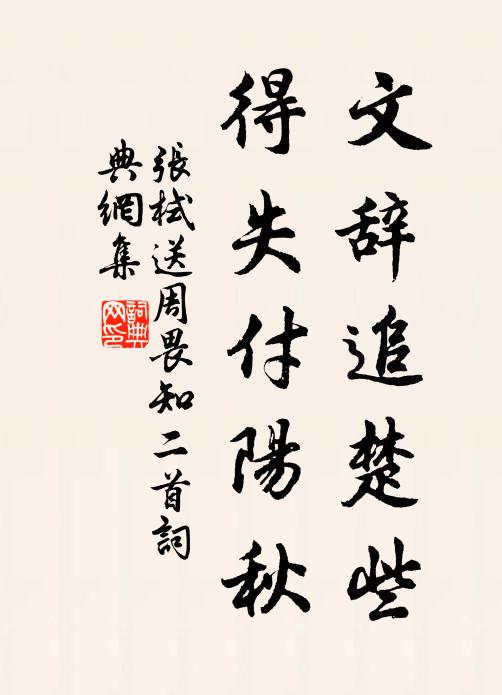 文辞追楚些
得失付陽秋
張栻送周畏知二首詞
典網集
詞典
网印